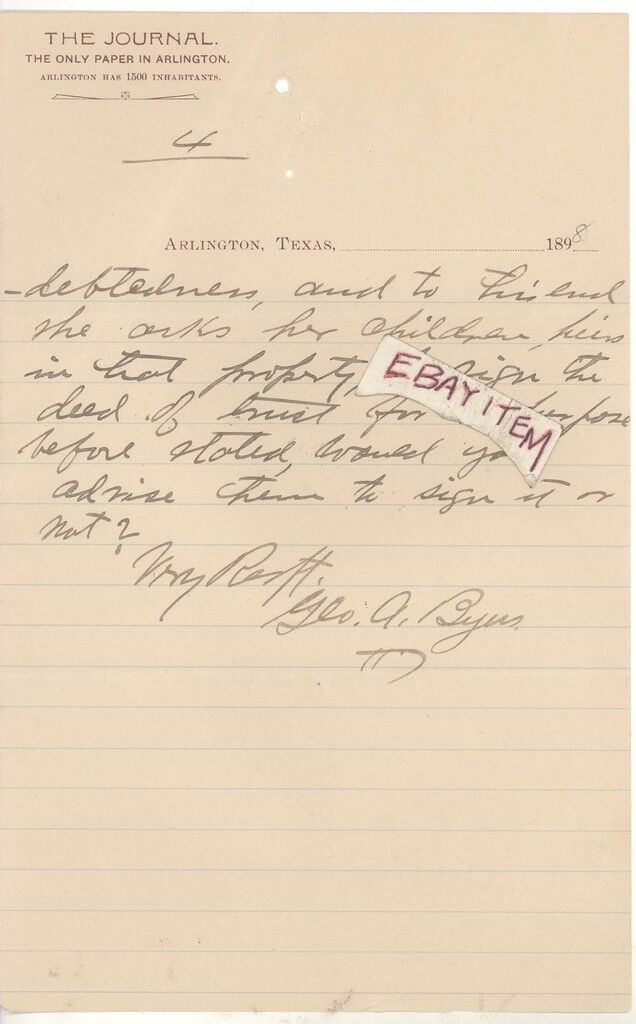 THE JOURNAL.
THE ONLY PAPER IN ARLINGTON.
ARLINGTON HAS 1500 INHABITANTS.
4
ARLINGTON, TEXAS, 1898
-debtedness, and to this end
she asks her children, heirs
in that property, sign the
deed of trust for
before stated, would
advise them to sign it or
not?
Very Respt.
Geo. A. Byers
EBAY ITEM